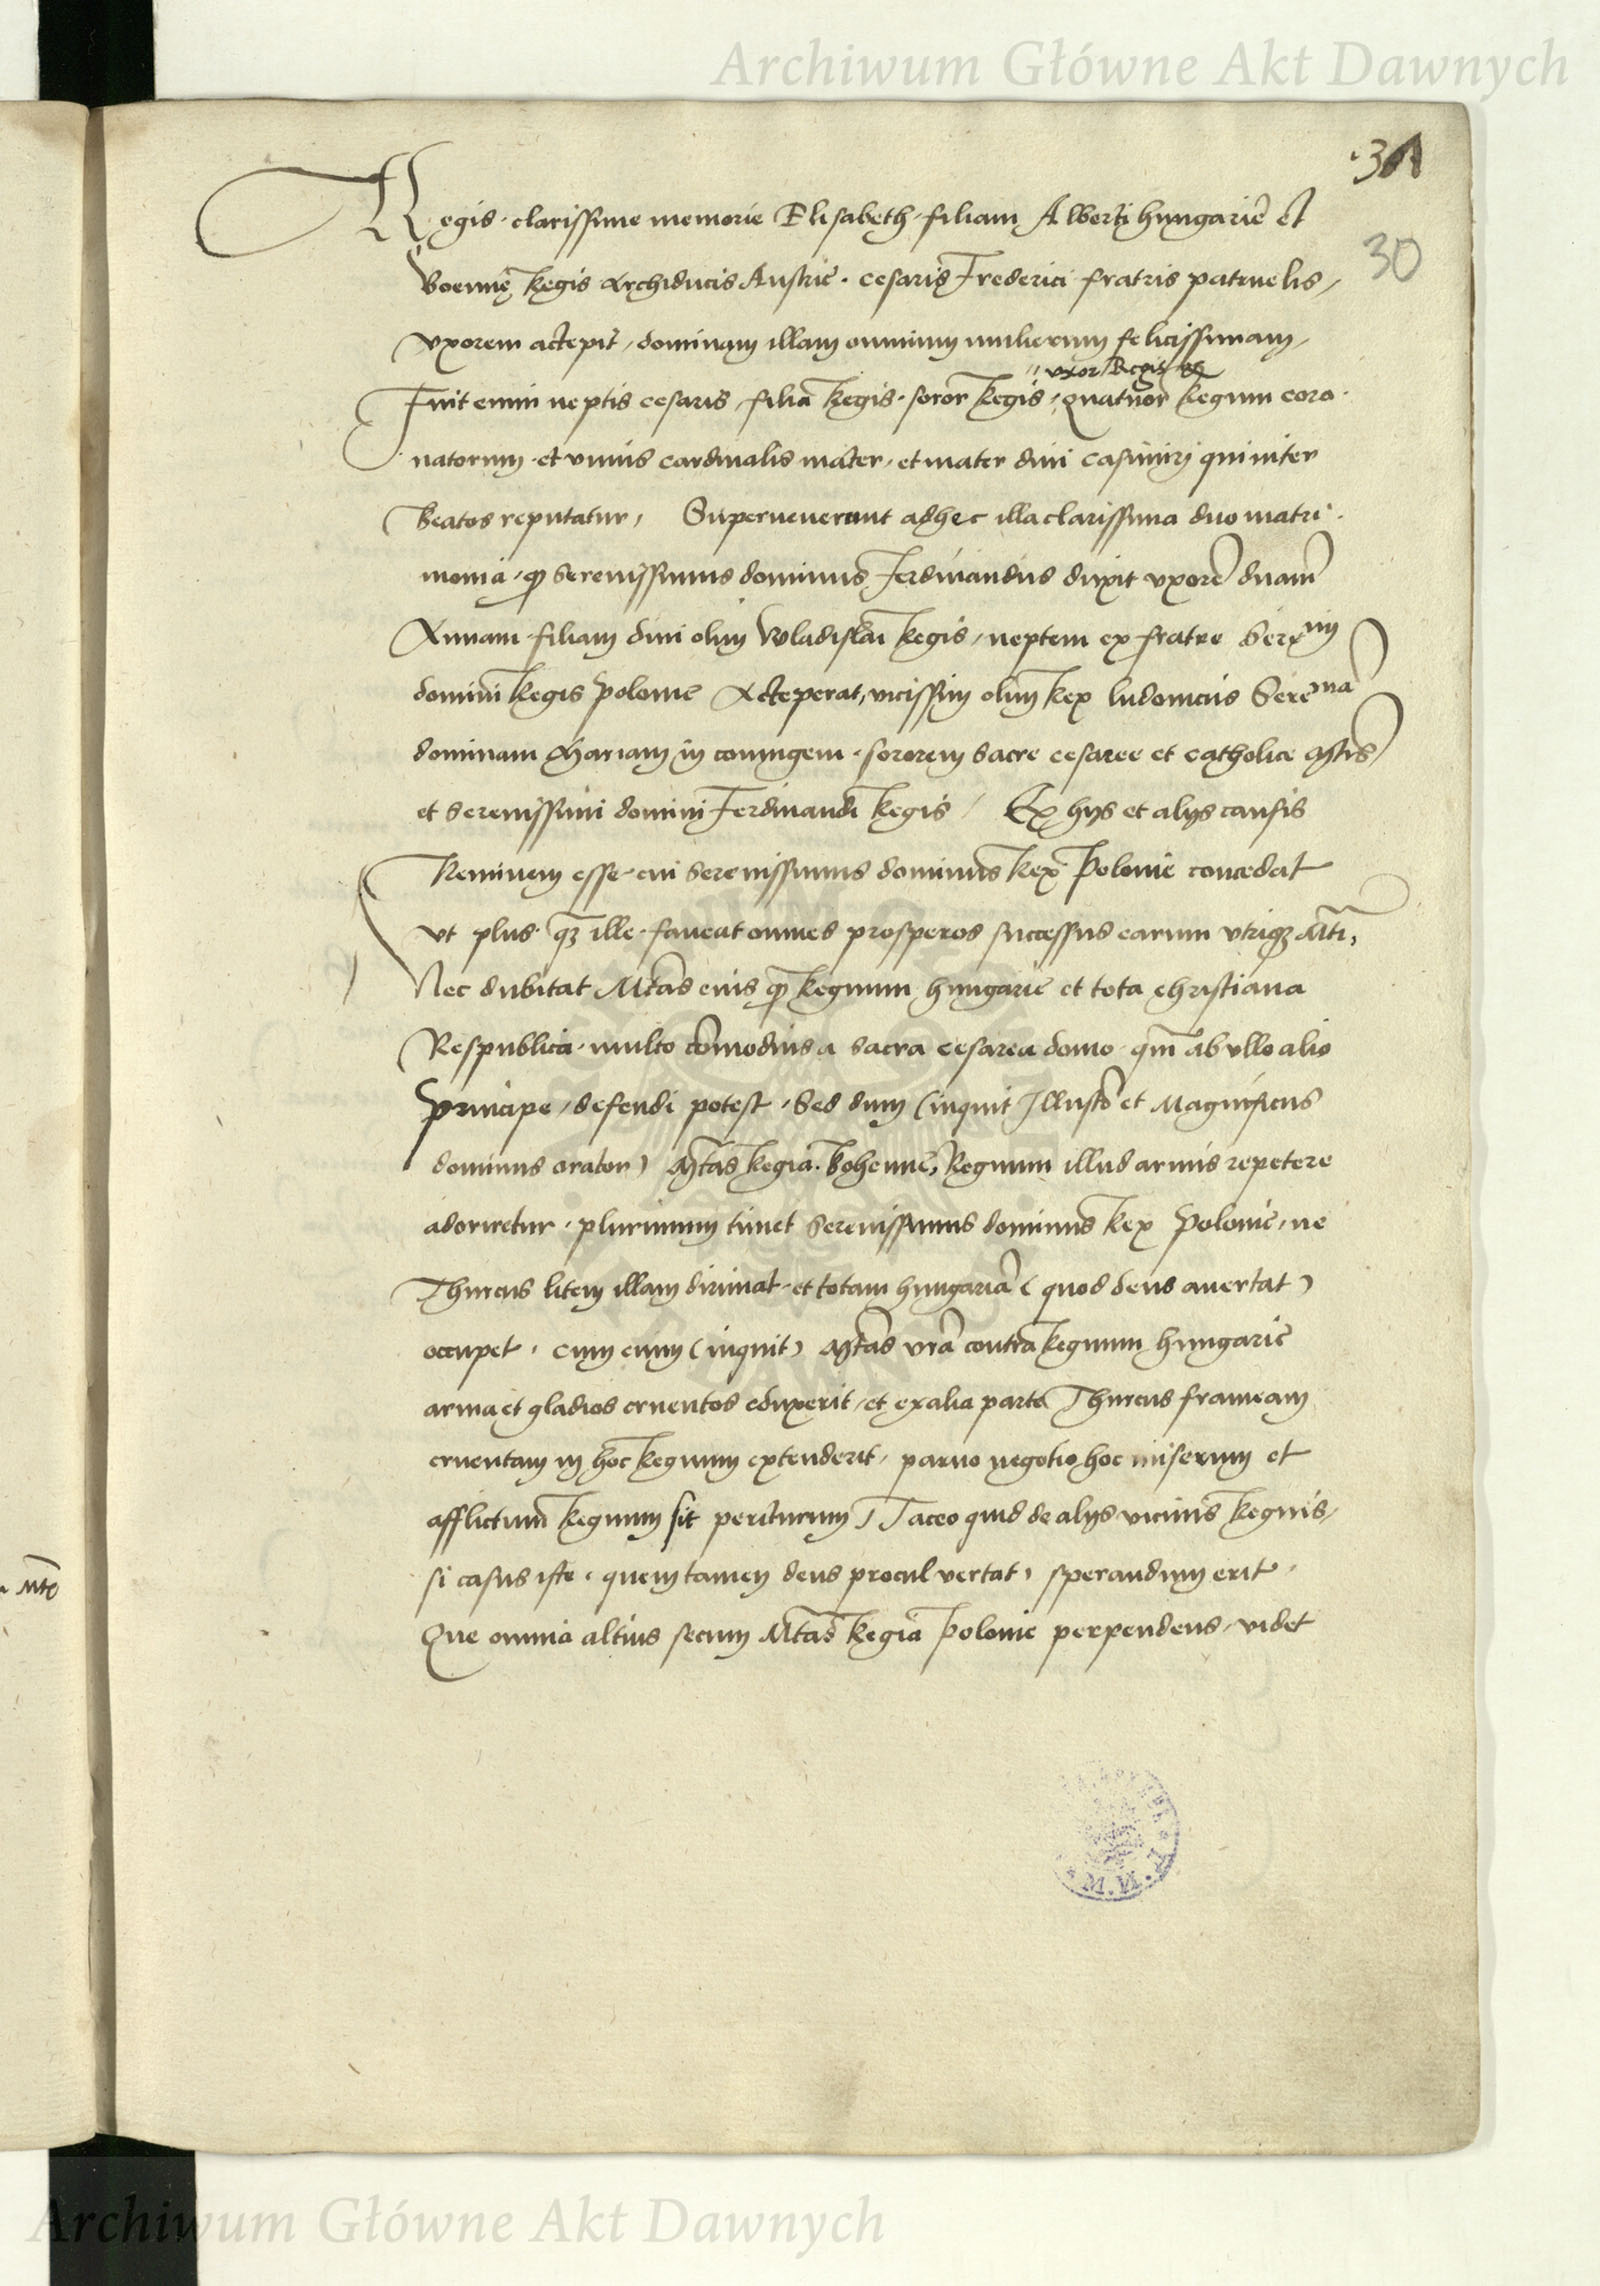 Archiwum Główne Akt Dawnych
31
30
Regis clarissime memorie Elisabeth filiam Alberti hungarie et
Boemię Regis Archiducis Austrie. cesaris Frederici fratris patruelis,
vxorem accepit, dominam illam omnium mulierum felicissimam,
vxor Regis
Fuit enim neptis cesaris, filia Regis, soror Regis, Quatuor Regum coro
natorum et vnius cardinalis mater, et mater diui casimiri qui inter
beatos reputatur, Superuenerunt adhec illa clarissima duo matri
monia, qp serenissimus dominus ferdinandus duxit vxorē dnam̄
Annam filiam diui olim Wladislai Regis, neptem ex fratre Serenimi
domini Regis Polonie Acceperat, vicissim olim Rex ludouicus Serenma
dominam Mariam in coniugem sororem sacre cesaree et catholice Mtis
et serenissimi domini Ferdinandi Regis, Ex hijs et alijs causis
Neminem esse cui serenissimus dominus Rex Polonie concedat
vt plus qz ille faueat omnes prosperos successus earum vtriqz Mti,
Nec dubitat Mtas eius qp Regnum hungarie et tota christiana
Respublica multo cōmodius a sacra cesarea domo qm̄ ab vllo alio
Principe, defendi potest, Sed dum (inquit Illustris et Magnificus
dominus orator) Mtas Regia Bohemie, Regnum illud armis repetere
adoriretur, plurimum timet serenissimus dominus Rex Polonie, ne
Thurcus litem illam dirimat et totam hungariā (quod deus auertat)
occupet, cum enim (inquit) Mtas vrā contra Regnum hungarie
arma et gladios cruentos eduxerit, et ex alia parte Thurcus frameam
cruentam in hoc Regnum extenderit, paruo negotio hoc miserum et
afflictum Regnum sit periturum, Taceo quid de alijs vicinis Regnis,
si casus iste, quem tamen deus procul vertat, sperandum erit.
Que omnia altius secum Mtas Regia Polonie perpendens, videt
Archiwum Główne Akt Dawnych